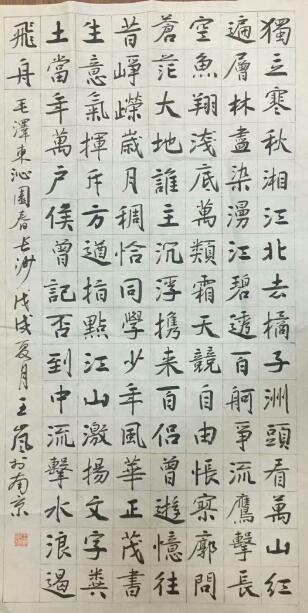 獨立寒秋湘江北去橘子洲頭看萬山紅
遍層林盡染漫江碧透百舸爭流鷹擊長
空魚翔淺底萬類霜天競自由悵寥廓問
蒼茫大地誰主沉浮携来百侣曾遊憶往
昔崢嶸歲月稠恰同學少年風華正茂書
生意氣揮斥方遒指點江山激揚文字糞
土當年萬户侯曾記否到中流擊水浪遏
飛舟 毛澤東沁園春長沙 戊戌夏月王嵐於南京